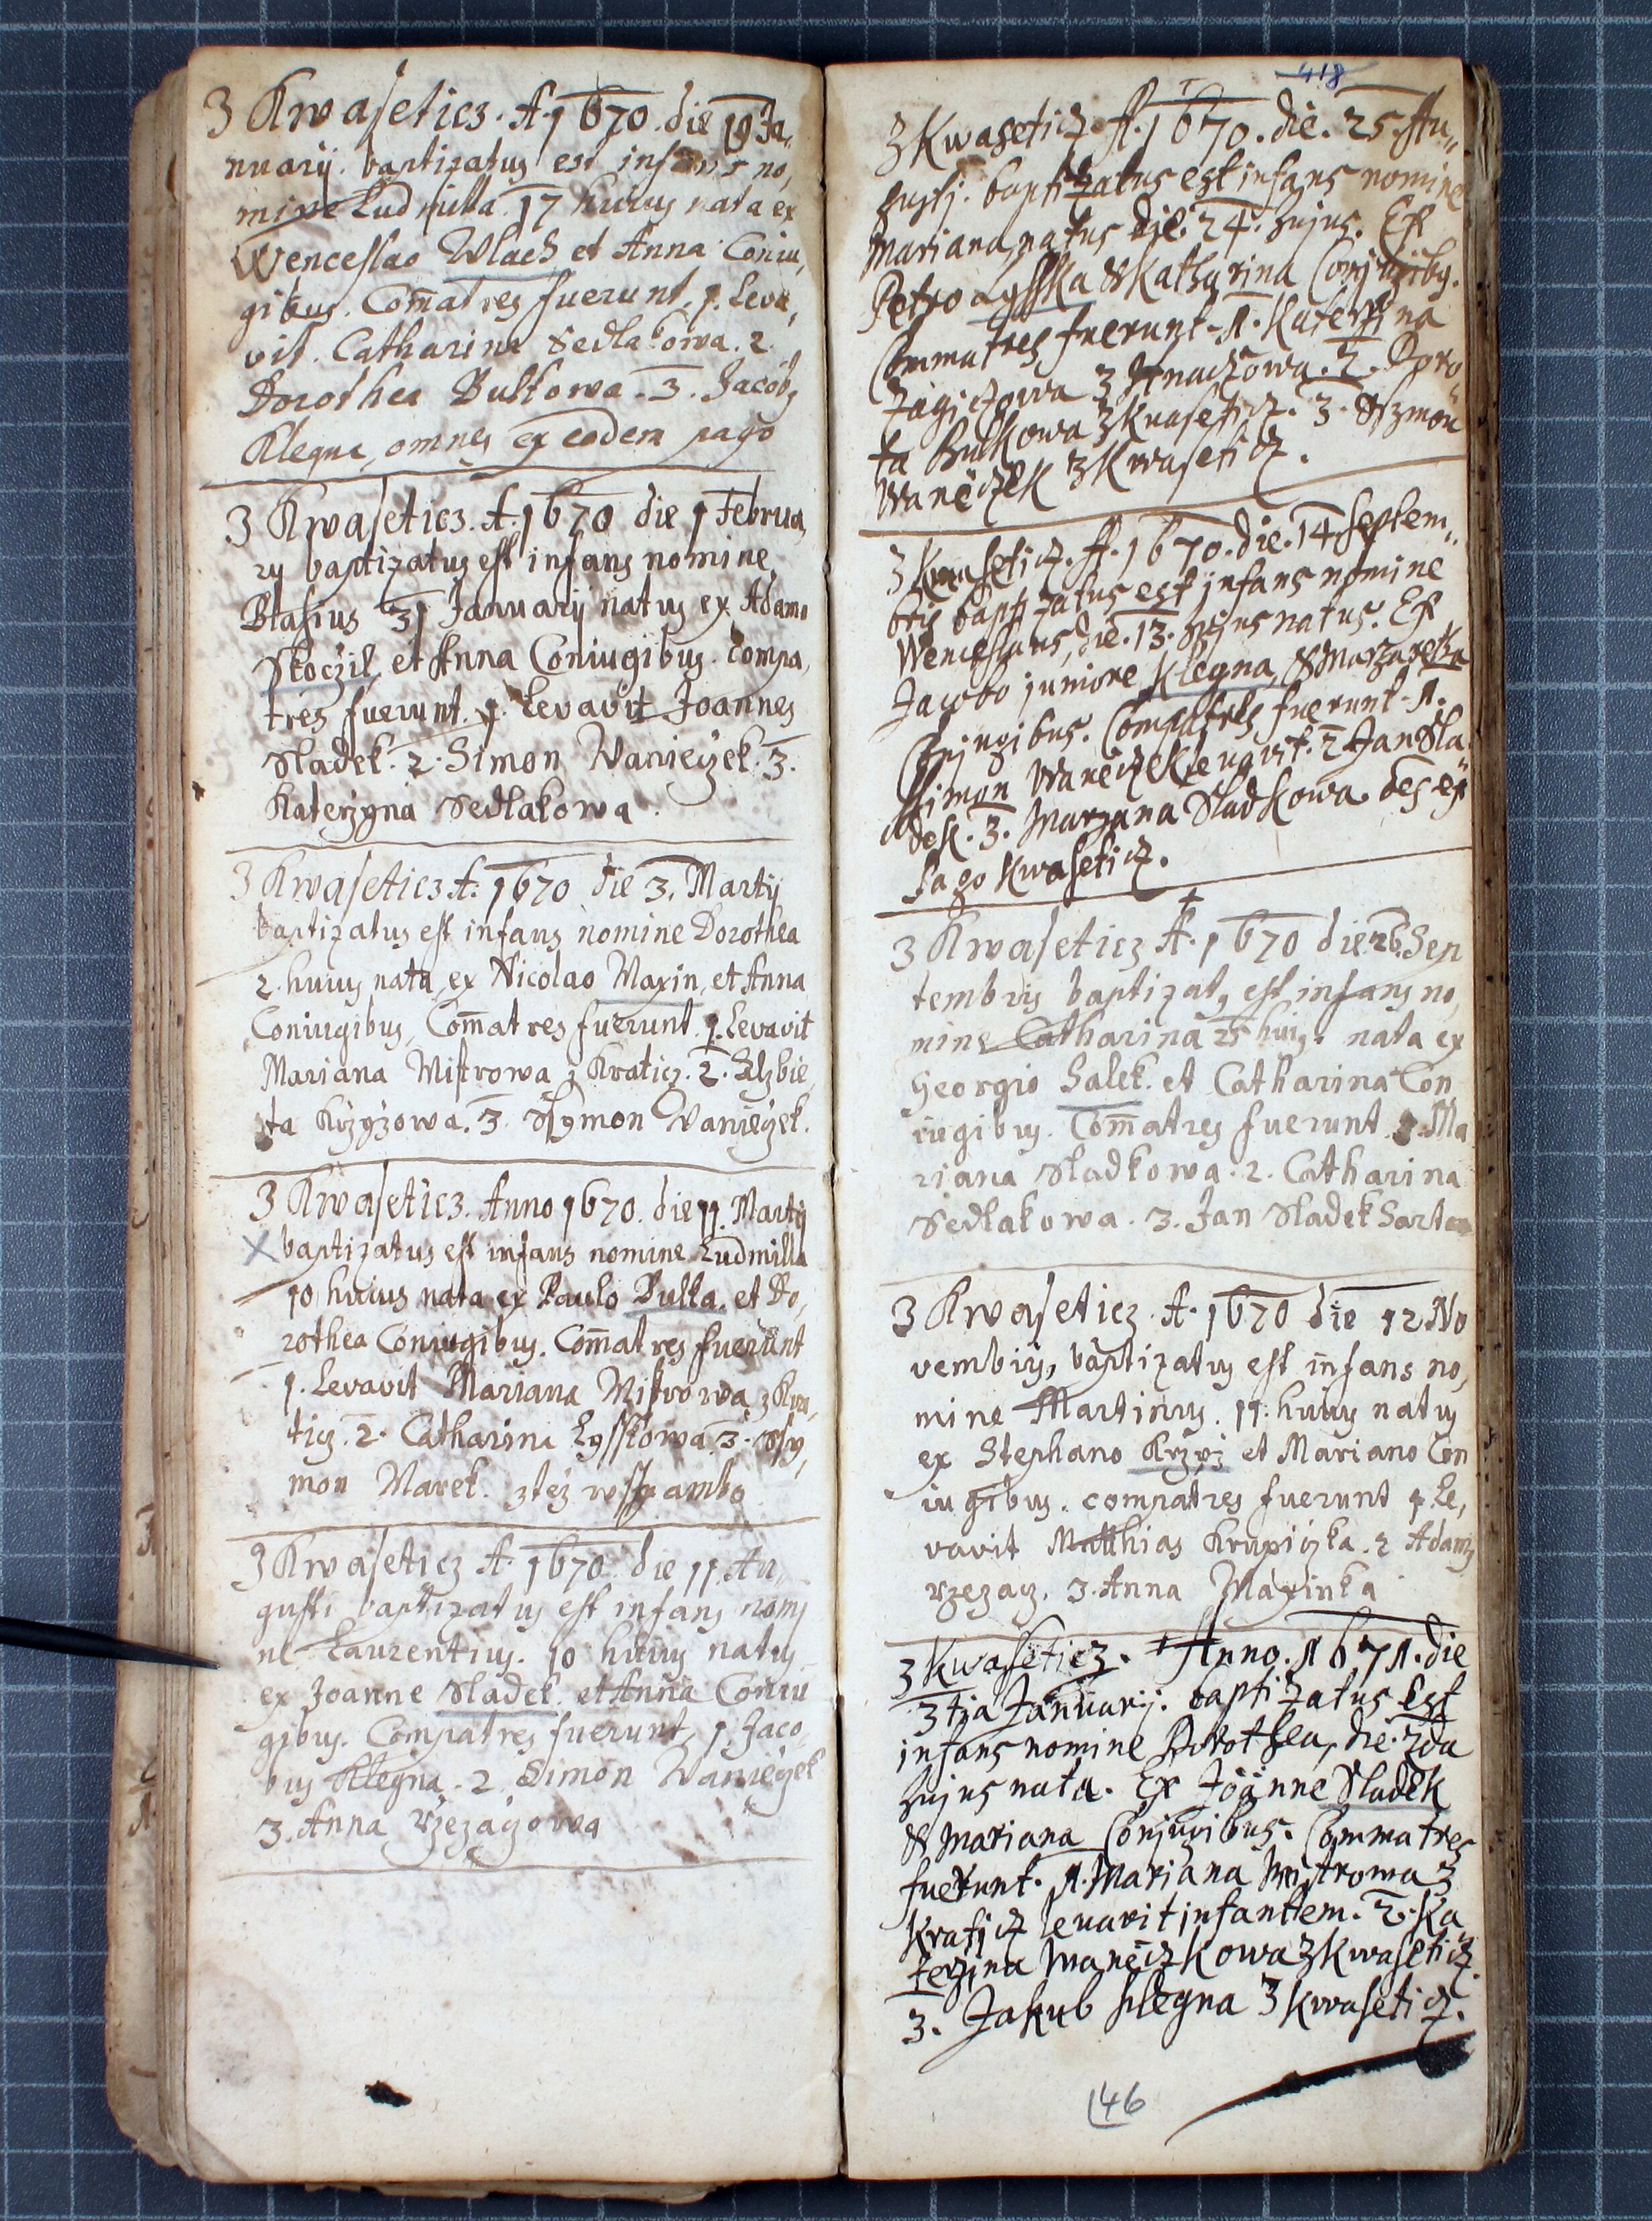 3 Kwaseticz. A. 1670. die 19 Ja,
nuarij. baptizatus est infans no,
mine Ludmilla 17 huius nata ex
Wenceslao Wlach et Anna Coniu,
gibus. Com̄atres fuerunt. 1. Leva,
vit. Catharina Sedlakowa. 2.
Dorothea Bulkowa. 3. Jacobus
Klegna, omnes ex eodem pago
3 Kwaseticz. A. 1670 die 1 Februa,
ry baptizatus est infans nomine
Blasius 31 Januarij natus ex Adamo
Skoczil, et Anna Coniugibus. Compa,
tres fuerunt. 1. Levavit Joannes
Sladek. 2. Simon Wanieczek. 3.
Katerzyna Sedlakowa.
3 Kwaseticz A. 1670 die 3. Martij
baptizatus est infans nomine Dorothea
2. huius nata ex Nicolao Maxin, et Anna
Coniugibus, Com̄atres fuerunt 1. Levavit
Mariana Mistrowa z Kraticz. 2. Elzbie,
ta Krzyzowa. 3 Ssymon Wanieczek.
3 Kwaseticz. Anno 1670. die 11. Martij
baptizatus est infans nomine Ludmilla
10 huius nata ex Paulo Bulka. et Do,
rothea Coniugibus. Com̄atres fuerunt
1. Levavit Mariana Mistrowa z Kra,
ticz. 2. Catharina Lysskowa. 3. Ssy,
mon Marek. z téz wsy ambo
3 Kwaseticz A. 1670. die 11. Au,
gusti baptizatus est infans nomi
ne Laurentius. 10 huius natus
ex Joanne Sladek. et Anna Coniu
gibus. Compatres fuerunt, 1. Jaco,
bus Klegna. 2. Simon Wanieczek
3. Anna Rzezaczowa
418
3 Kwaseticz. A. 1670. die. 25. Au,,
gustj. baptizatus est infans nomine
Mariana, natus die. 24. hujus. Ex
Petro Lysska & Katharina Conjugibus.
Commatres fuerunt. 1. Katerzina
3 Hnaczowa. 2. Doro,,
ta Bulkowa 3 Kwaseticz. 3. Sszmon
Waneczek 3 Kwaseticz.
3 Kwaseticz. A. 1670. die. 14 Septem,,
bris baptizatus est infans nomine
Wenceslaus, die. 13. hujus natus. Ex
Jacobo juniore Klegna, & Marzaretka
Conjugibus. Compatres fuerunt. 1.
Ssimon Waneczek levavit. 2. Jan Sla,,
dek. 3. Marzana Sladkowa. oēs ex
Pago Kwaseticz.
3 Kwaseticz A. 1670 die 26. Sep
tembris baptizatus est infans no,
mine Catharina 25 huius. nata ex
Georgio Salek. et Catharina Con
iugibus. Com̄atres fuerunt. 1. Ma
riana Sladkowa. 2. Catharina
Sedlakowa. 3. Jan Sladek Sartor
3 Kwaseticz. A. 1670 die 12 No
vembris, baptizatus est infans no,
mine Martinus. 11. huius natus
ex Stephano Krzyz et Mariano Con
iugibus. compatres fuerunt 1. Le,
vavit Matthias Krupiczka. 2 Adamus
rzezacz. 3. Anna Maxinka
3 Kwaseticz. Anno. 1671. die
3tia Januarij. baptizatus Est
infans nomine Dorothea, die. 2da
hujus nata. Ex Joanne Sladek
& Mariana Conjugibus. Commatres
fuerunt. 1. Mariana Mistrowa 3
Kraticz levavit infantem. 2. Ka,,
terzina Waneczkowa 3 Kwaseticz.
3. Jakub Klegna 3 Kwaseticz.
146